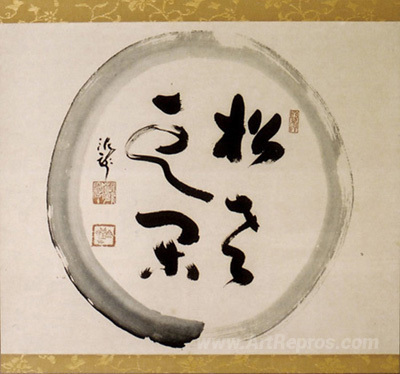 松老
雲閑
www.ArtRepros.com